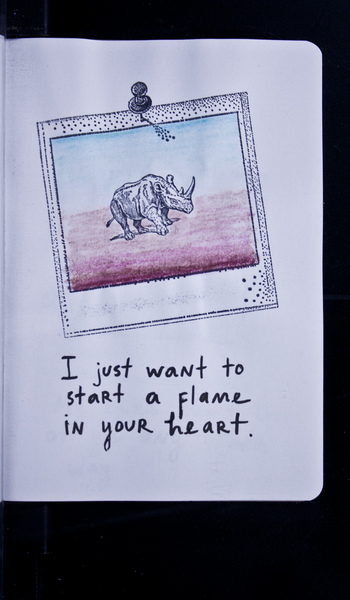 I just want to
start a flame
in your heart.